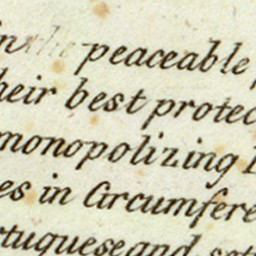 in the peaceable
heir best protec
monopolizing
es in Circumfere
rtuguese and set